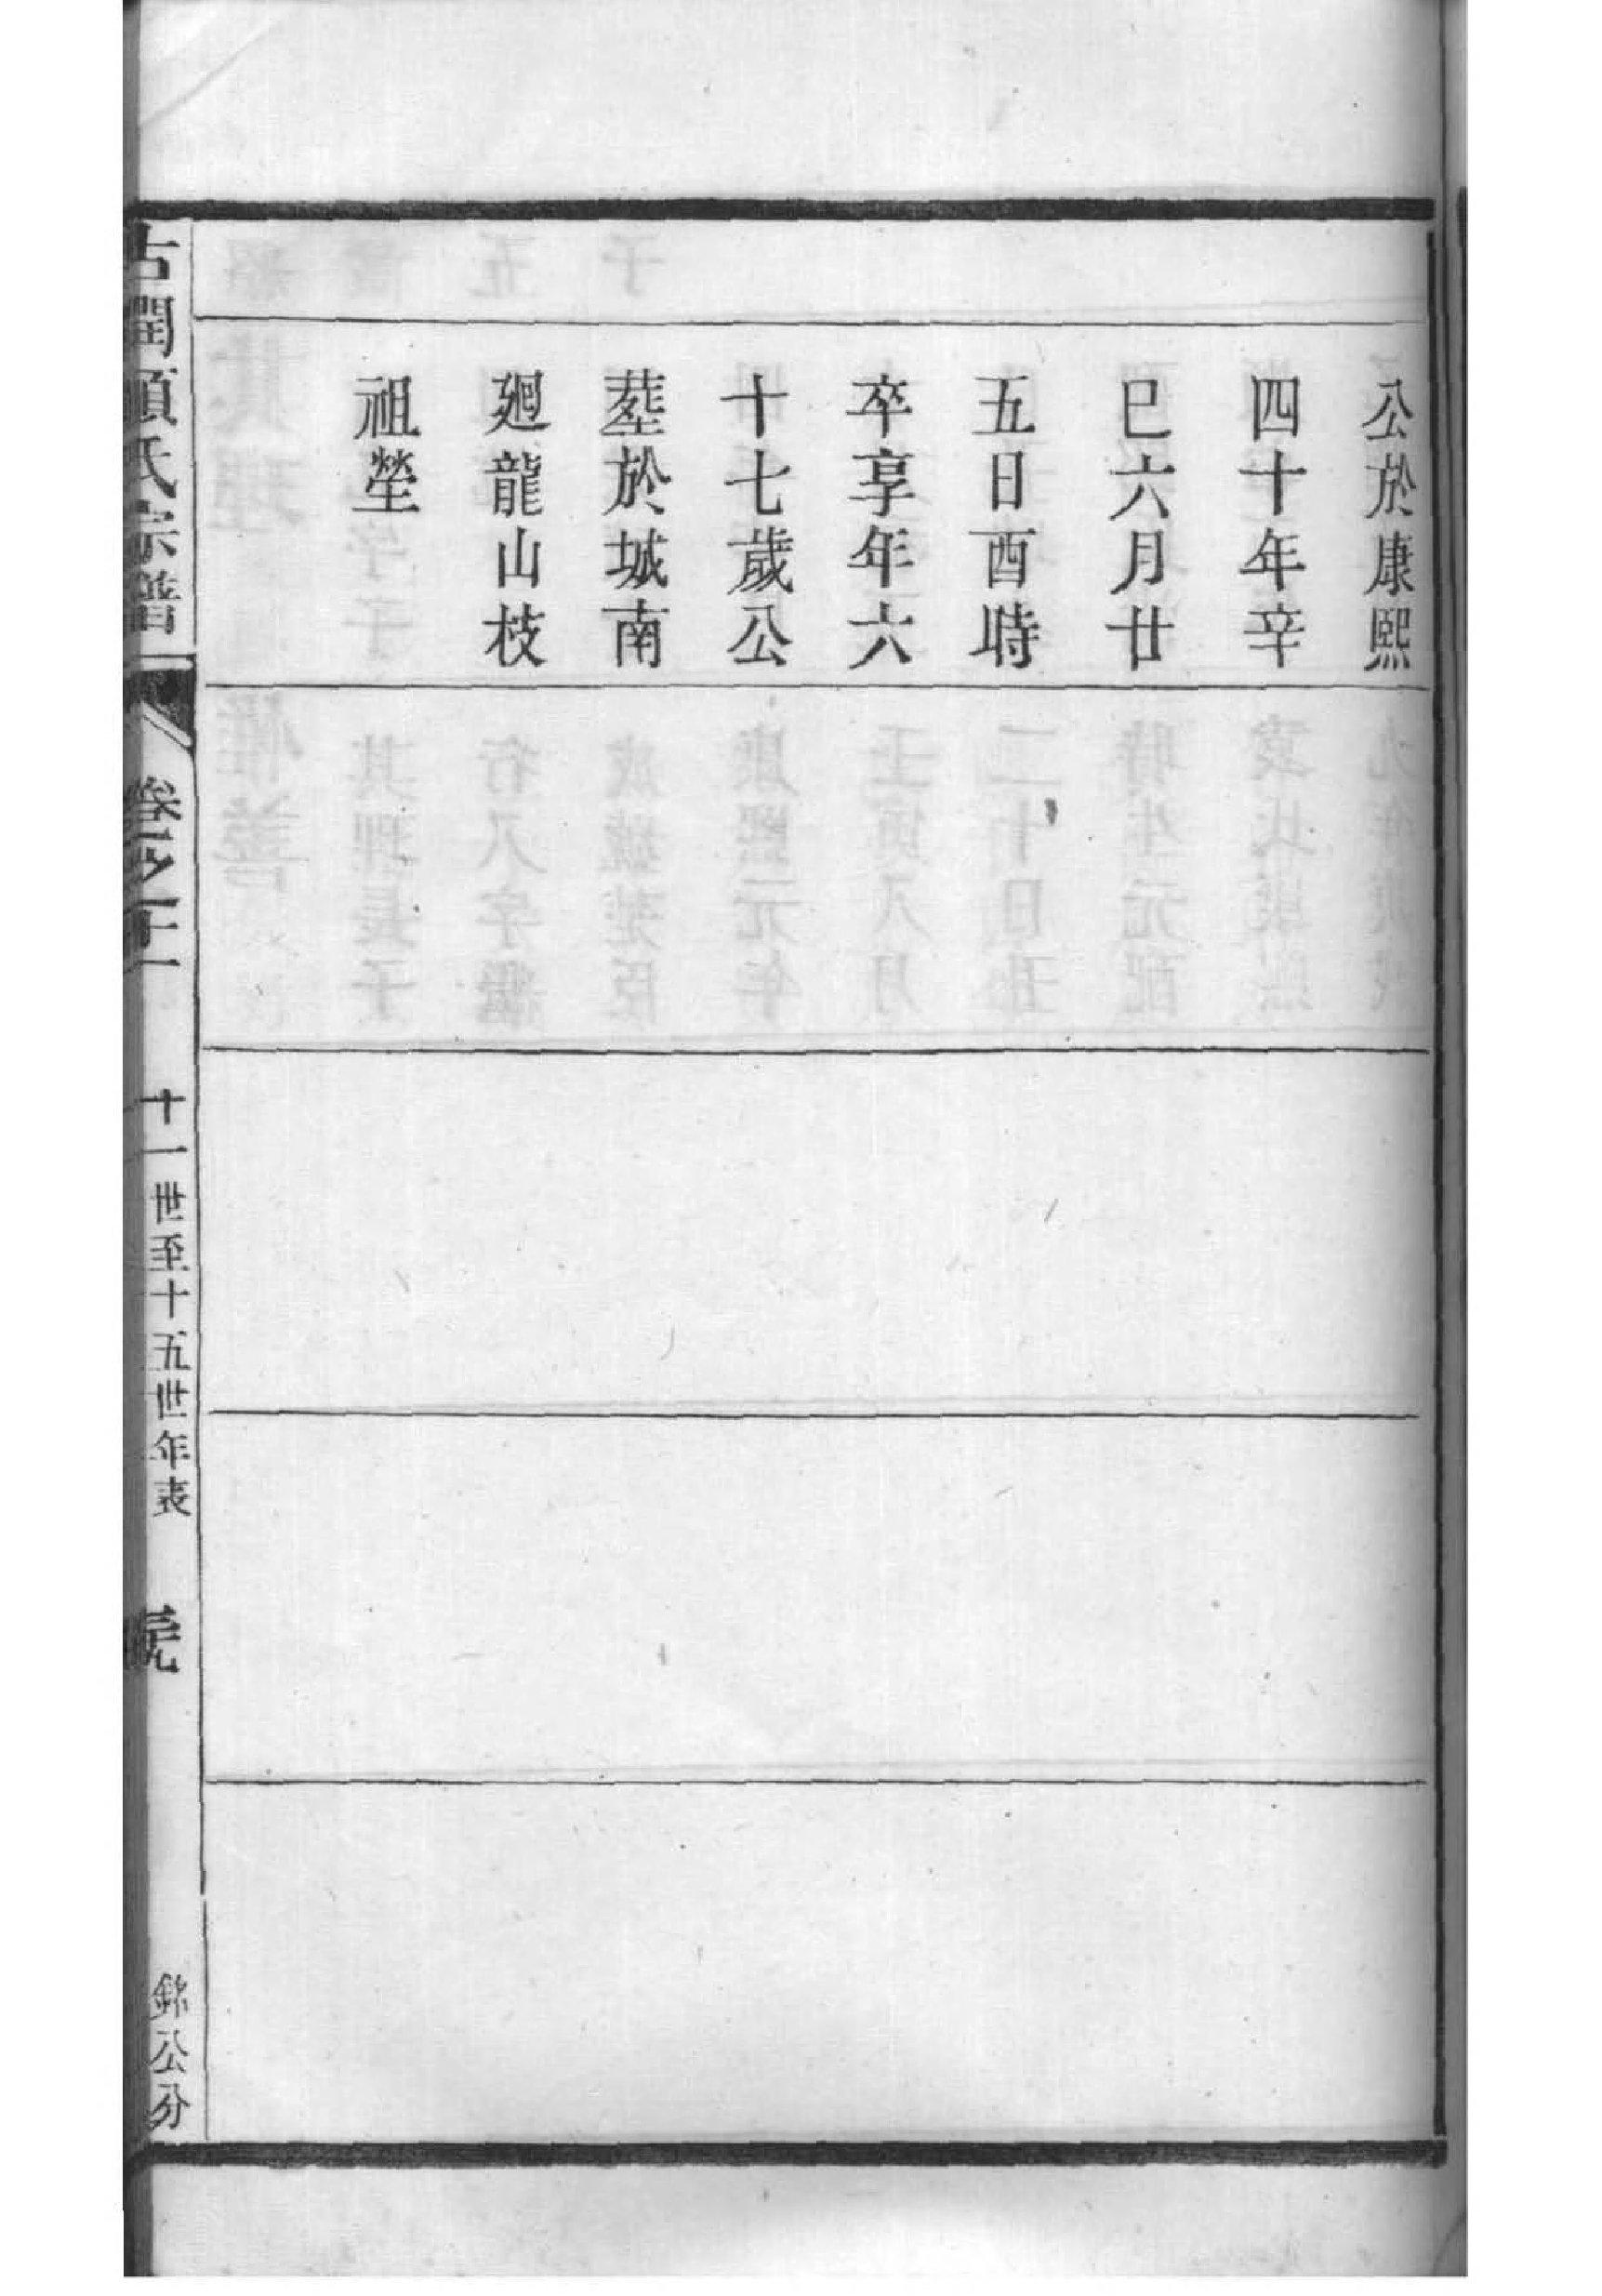 公於康熙
四十年辛
巳六月廿
五日酉時
卒享年六
十七歲公
塟於城南
廻龍山枝
祖塋
古潤順氏宗譜
卷之十一
十一世至十五世年表
銘公分